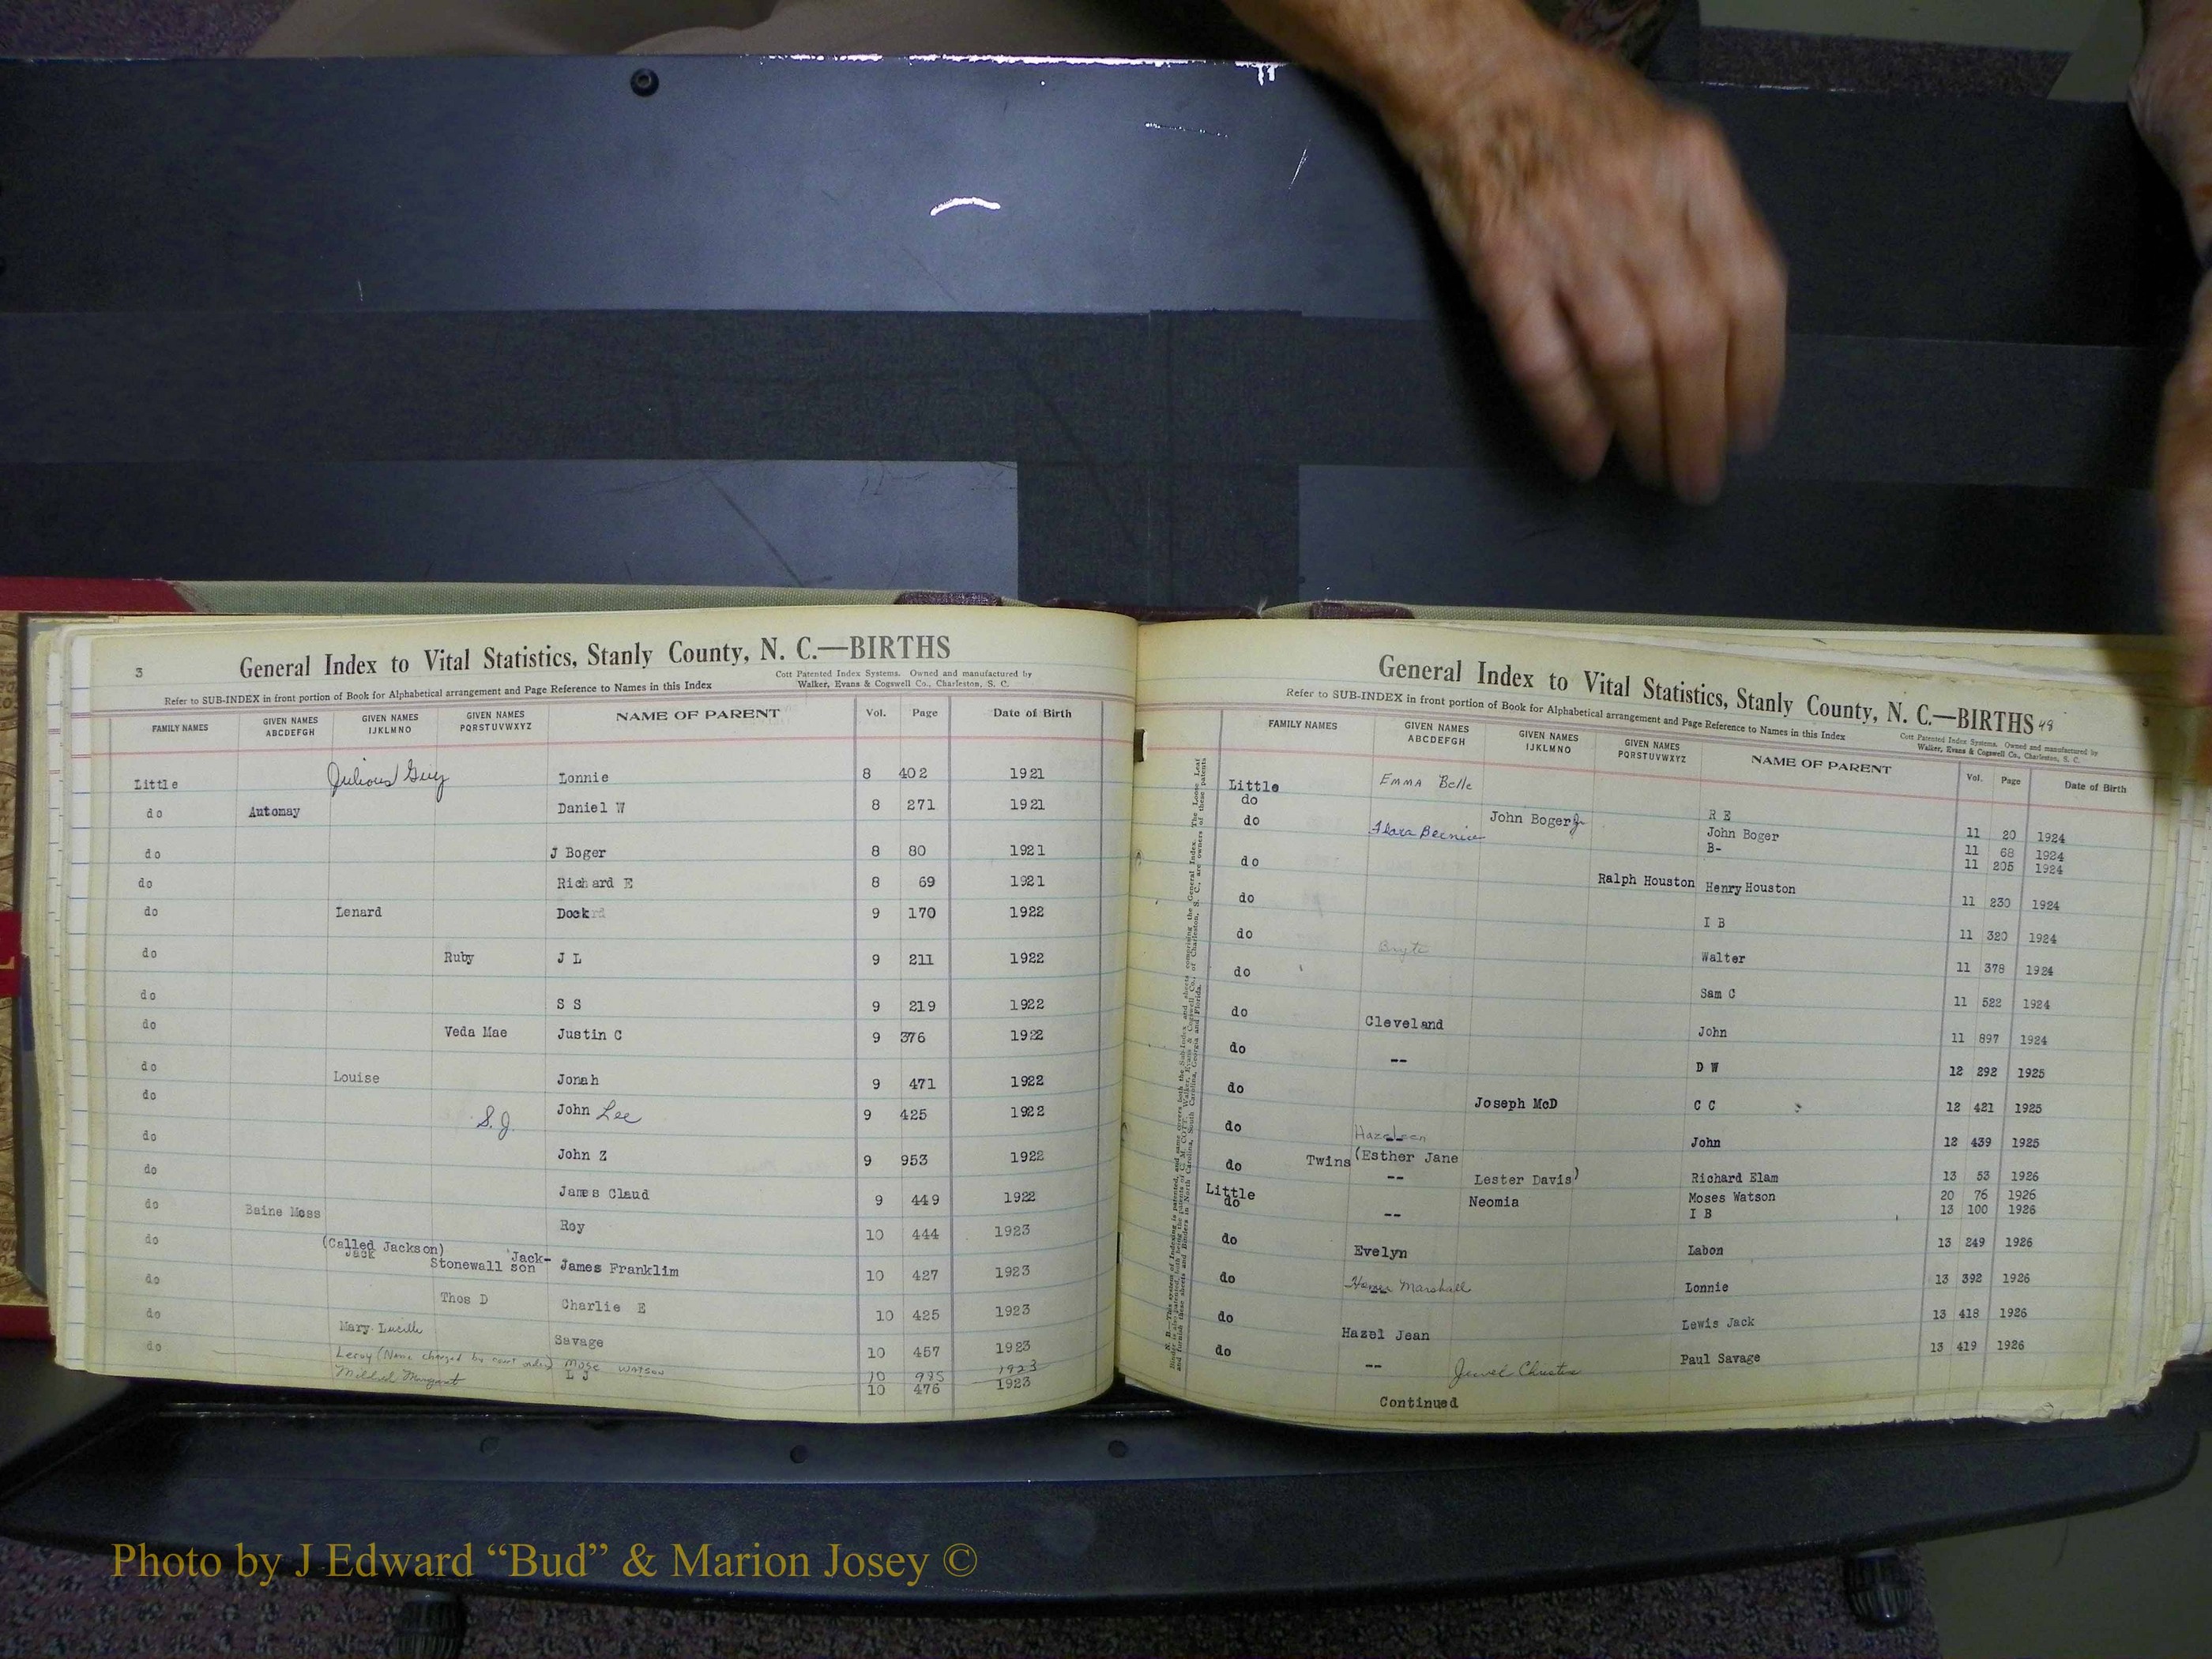 3
General Index to Vital Statistics, Stanly County, N. C.—BIRTHS
Refer to SUB-INDEX in front portion of Book for Alphabetical arrangement and Page Reference to Names in this Index
Cott Patented Index Systems. Owned and manufactured by
Walker, Evans & Cogswell Co., Charleston, S. C.
FAMILY NAMES GIVEN NAMES ABCDEFGH GIVEN NAMES IJKLMNO GIVEN NAMES PQRSTUVWXYZ NAME OF PARENT Vol. Page Date of Birth
Little Julious Guy Lonnie 8 402 1921
do Automay Daniel W 8 271 1921
do J Boger 8 80 1921
do Richard E 8 69 1921
do Lenard Dock 9 170 1922
do Ruby J L 9 211 1922
do S S 9 219 1922
do Veda Mae Justin C 9 376 1922
do Louise Jonah 9 471 1922
do S.J. John Lee 9 425 1922
do John Z 9 953 1922
do James Claud 9 449 1922
do Baine Moss Roy 10 444 1923
do (Called Jackson) Jack Stonewall Jack-son James Franklim 10 427 1923
do Thos D Charlie E 10 425 1923
do Mary Lucille Savage 10 457 1923
Leroy (Name changed by court order) Mose Watson 10 985 1923
do Mildred Margaret L J 10 476 1923
General Index to Vital Statistics, Stanly County, N. C.—BIRTHS 48
3
Refer to SUB-INDEX in front portion of Book for Alphabetical arrangement and Page Reference to Names in this Index
Cott Patented Index Systems. Owned and manufactured by
Walker, Evans & Cogswell Co., Charleston, S. C.
FAMILY NAMES GIVEN NAMES ABCDEFGH GIVEN NAMES IJKLMNO GIVEN NAMES PQRSTUVWXYZ NAME OF PARENT Vol. Page Date of Birth
Little Emma Belle R E 11 20 1924
do John Boger Jr John Boger 11 68 1924
do Flara Bernice B- 11 205 1924
do Ralph Houston Henry Houston 11 230 1924
do I B 11 320 1924
do Walter 11 378 1924
do Sam C 11 522 1924
do Cleveland John 11 897 1924
do -- D W 12 292 1925
do Joseph McD C C 12 421 1925
do Hazeleen John 12 439 1925
do Twins (Esther Jane -- Lester Davis) Richard Elam 13 53 1926
Little Neomia Moses Watson 20 76 1926
do -- I B 13 100 1926
do Evelyn Labon 13 249 1926
do Homer Marshall Lonnie 13 392 1926
do Hazel Jean Lewis Jack 13 418 1926
do -- Jewel Christine Paul Savage 13 419 1926
Continued
Photo by J Edward “Bud” & Marion Josey ©